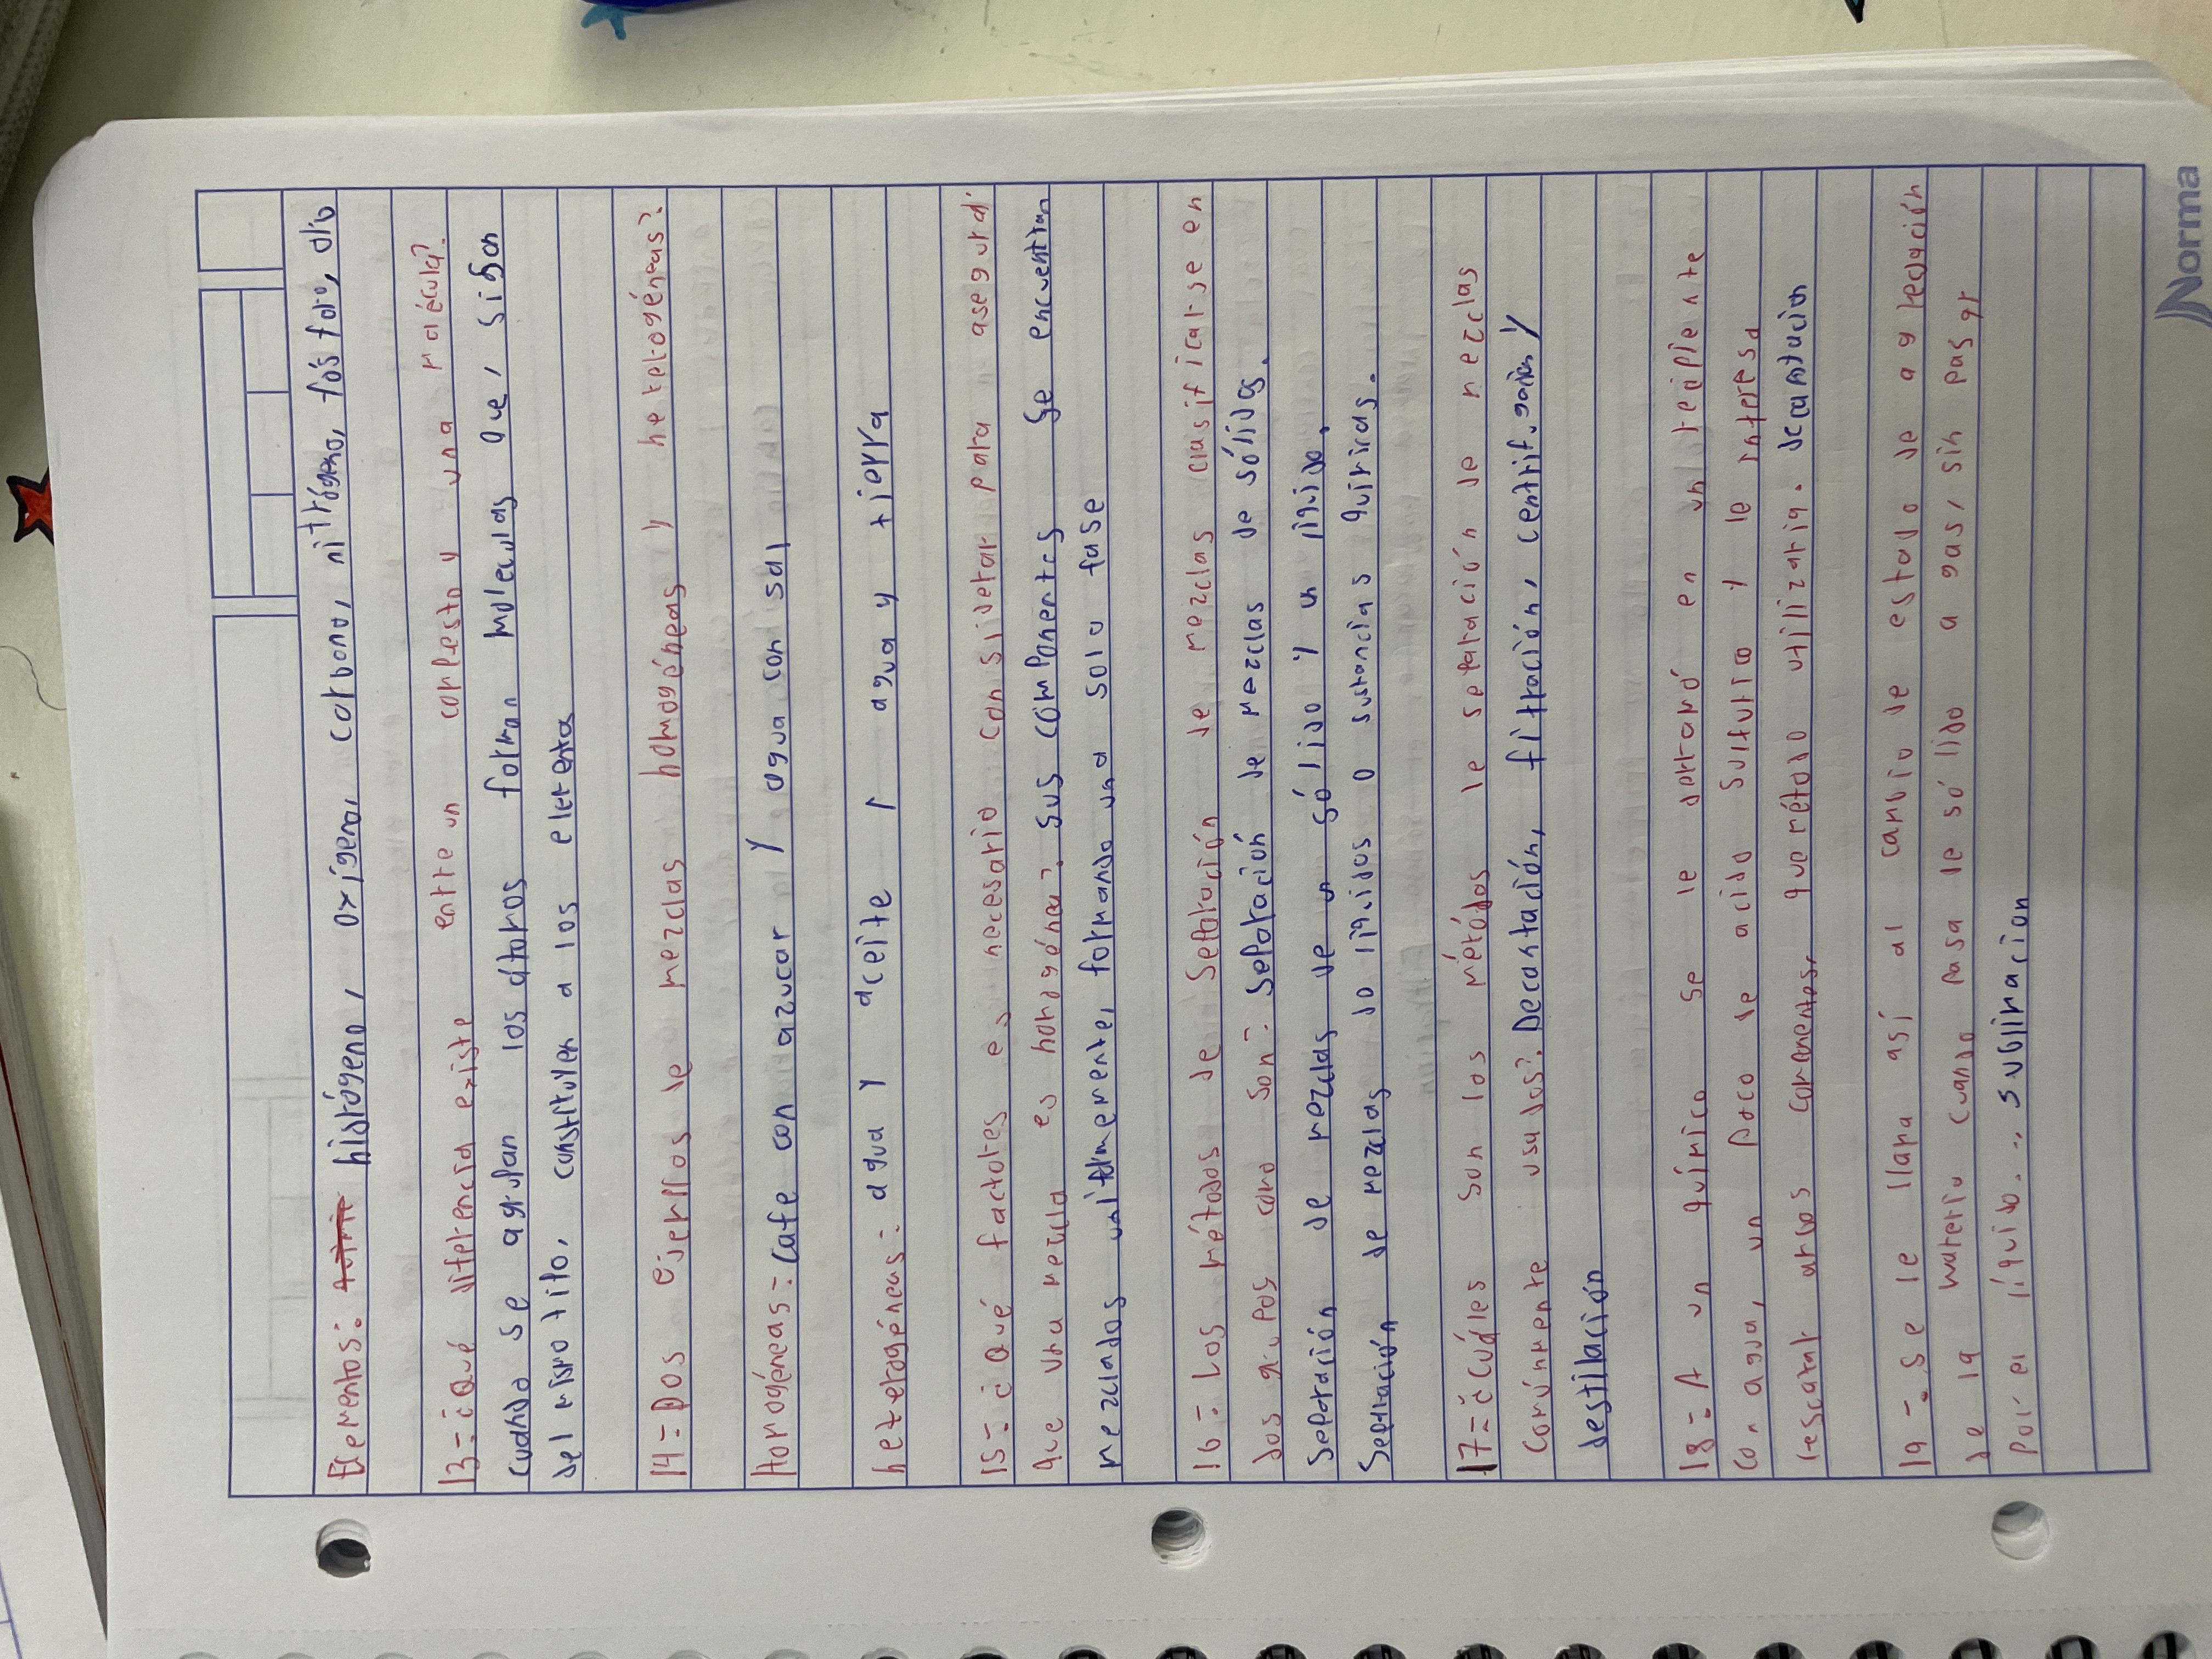 Elementos: hidrógeno, oxígeno, carbono, nitrógeno, fósforo,
13= ¿Qué diferencia existe entre un compuesto y una molécula?
cuando se agrupan los átomos forman moleculas que, si son
del mismo tipo, constituyen a los elementos
14= Dos ejemplos de mezclas homogéneas y heterogéneas?
Homogéneas= Cafe con azucar y agua con sal
heterogéneas= agua y aceite , agua y tierra
15= ¿Qué factores es necesario considerar para asegurar
que una mezcla es homogénea?. sus componentes se encuentran
mezclados uniformemente, formando una sola fase
16= Los métodos de separación de mezclas clasificarse en
dos grupos como son= Separación de mezclas de sólidos.
Separación de mezclas de un sólido y un líquido.
Separación de mezclas do líquidos o sustancias químicas.
17= ¿Cuáles son los métodos de separación de mezclas
comúnmente usados?. Decantación, filtración, centrifugación y
destilación
18= A un químico se le derramó en un recipiente
con agua, un poco de acido sulfurico y le interesa
rescatar ambos componentes, que método utilizaria. decantacion
19= Se le llama así al cambio de estado de agregación
de la materia cuando pasa de sólido a gas, sin pasar
por el líquido. = sublimacion
Norma